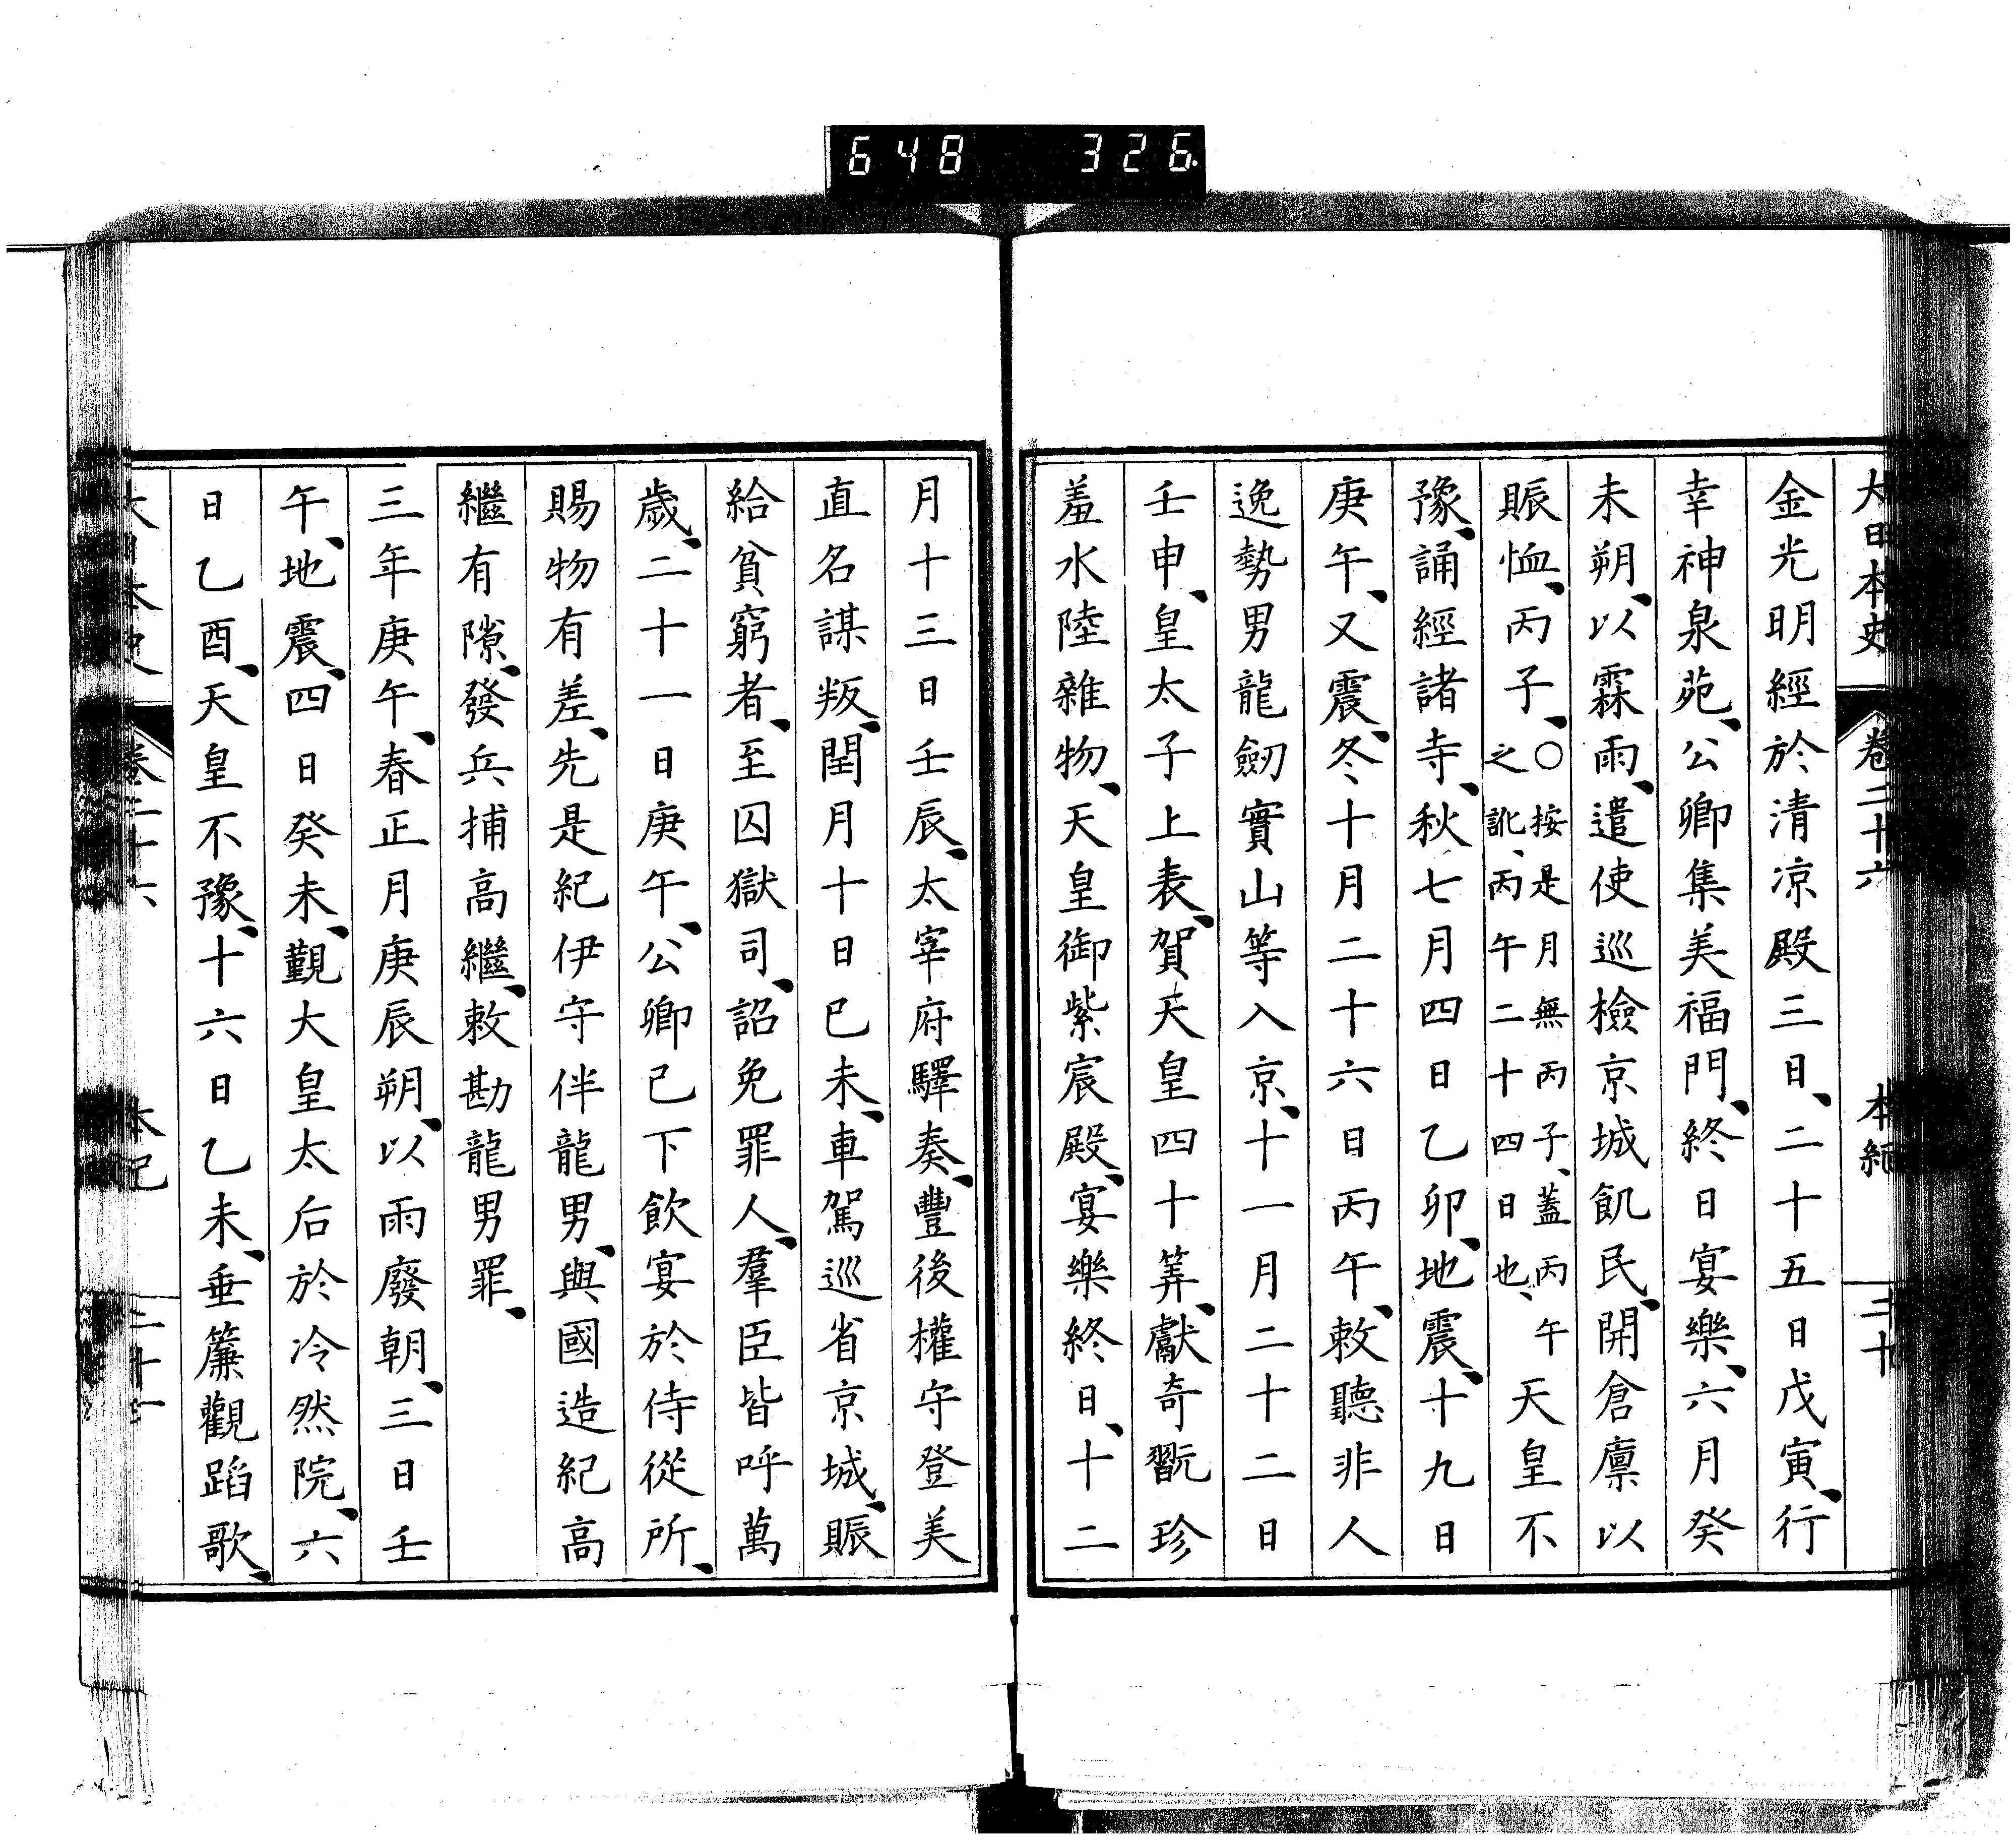 648 326
大日本史 卷二十六 本紀 二十
金光明經於清凉殿三日、二十五日戊寅、行
幸神泉苑、公卿集美福門、終日宴樂、六月癸
未朔、以霖雨、遣使巡檢京城飢民、開倉廩以
賑恤、丙子、〇按是月無丙子、蓋丙午之訛、丙午二十四日也、天皇不
豫、誦經諸寺、秋七月四日乙卯、地震、十九日
庚午、又震、冬十月二十六日丙午、敕聽非人
逸勢男龍劒實山等入京、十一月二十二日
壬申、皇太子上表、賀天皇四十筭、獻奇翫珍
羞水陸雜物、天皇御紫宸殿、宴樂終日、十二
月十三日壬辰、太宰府驛奏、豐後權守登美
直名謀叛、閏月十日己未、車駕巡省京城、賑
給貧窮者、至囚獄司、詔免罪人、羣臣皆呼萬
歲、二十一日庚午、公卿已下飲宴於侍從所、
賜物有差、先是紀伊守伴龍男、與國造紀高
繼有隙、發兵捕高繼、敕勘龍男罪、
三年庚午、春正月庚辰朔、以雨廢朝、三日壬
午、地震、四日癸未、觀大皇太后於冷然院、六
日乙酉、天皇不豫、十六日乙未、垂簾觀蹈歌、